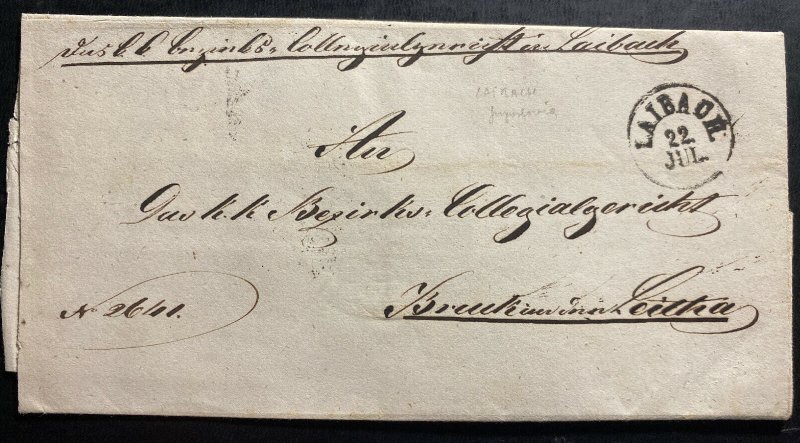 Das k. k. Bezirks-Collegialgericht in Laibach
LAIBACH.
22.
JUL.
An
Das k. k Bezirks-Collegialgericht
No 2641.
Bruck an der Leitha